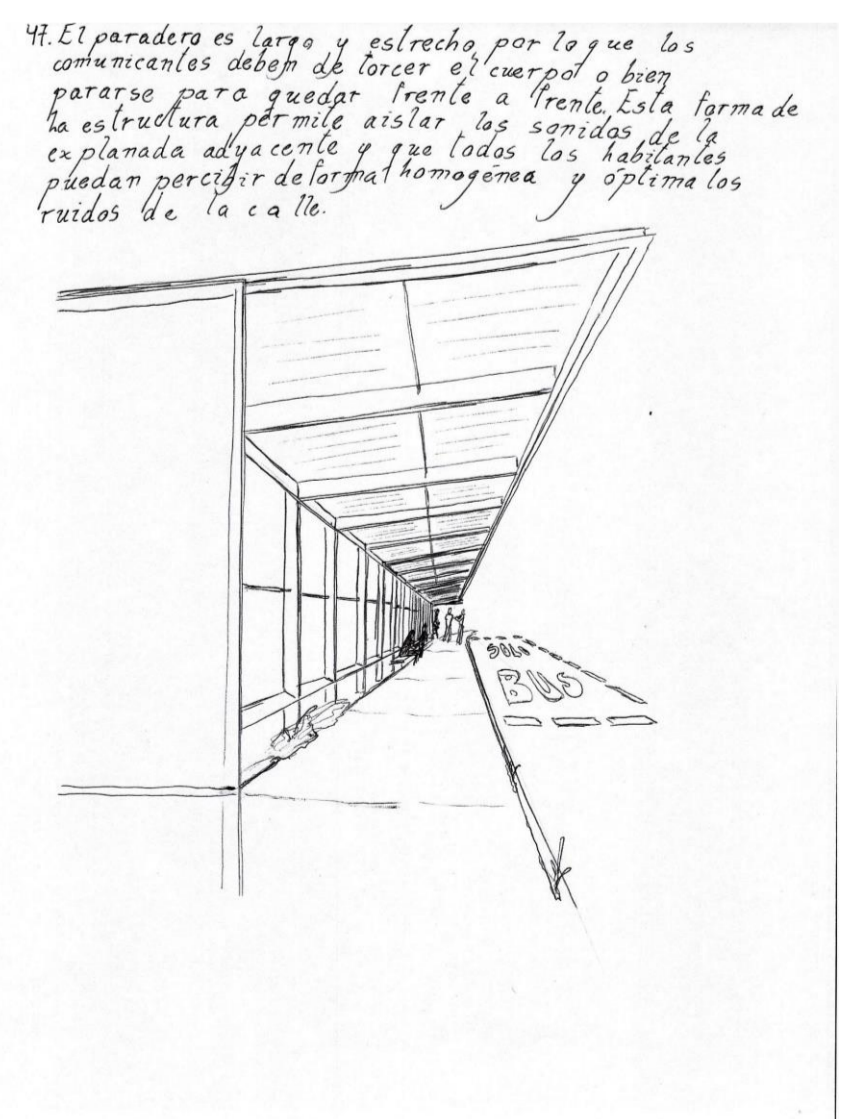 47. El paradero es largo y estrecho, por lo que los
comunicantes deben de torcer el cuerpo o bien
pararse para quedar frente a frente. Esta forma de
la estructura permite aislar los sonidos de la
explanada adyacente y que todos los habitantes
puedan percibir de forma homogénea y óptima los
ruidos de la calle.
SOLO
BUS